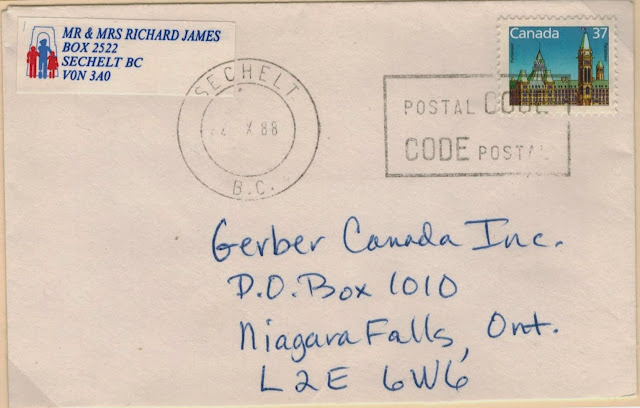 MR & MRS RICHARD JAMES
BOX 2522
SECHELT BC
V0N 3A0
Canada 37
SECHELT
X 88
B.C.
POSTAL CODE
CODE POSTAL
Gerber Canada Inc.
P.O. Box 1010
Niagara Falls, Ont.
L2E 6W6